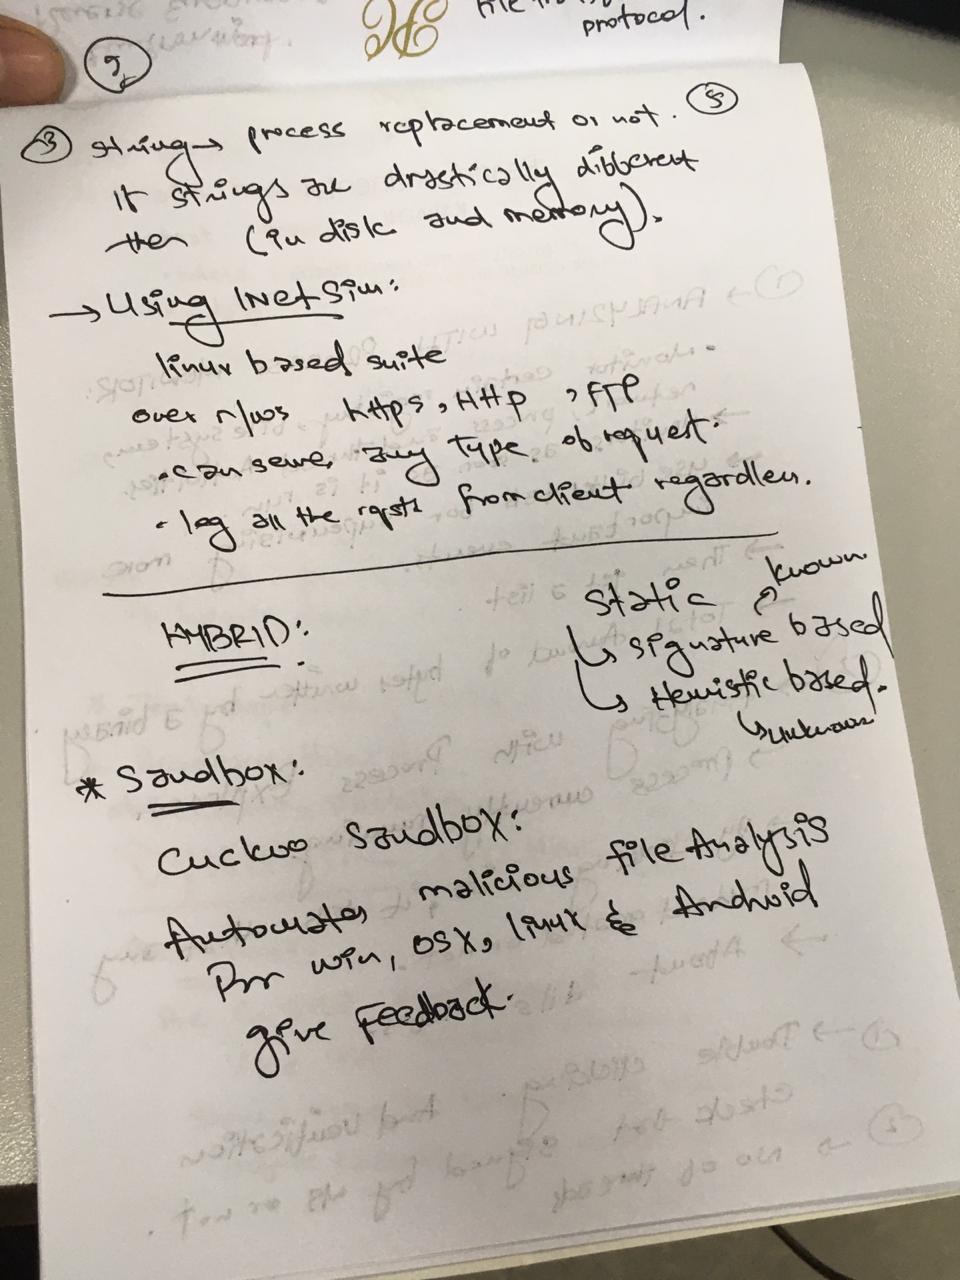 protocol.
③ string→ process replacement or not. ⑤
If strings are drastically different
then (in disk and memory).
→ Using INetSim:
linux based suite
over n/ws https, Http, FTP
• can serve any type of request.
• log all the rqsts from client regardless.
HYBRID:
Static
known
↳ signature based
↳ Heuristic based.
↳ unknown
* Sandbox:
Cuckoo Sandbox:
Automates malicious file Analysis
For win, OSX, linux & Android
give Feedback.